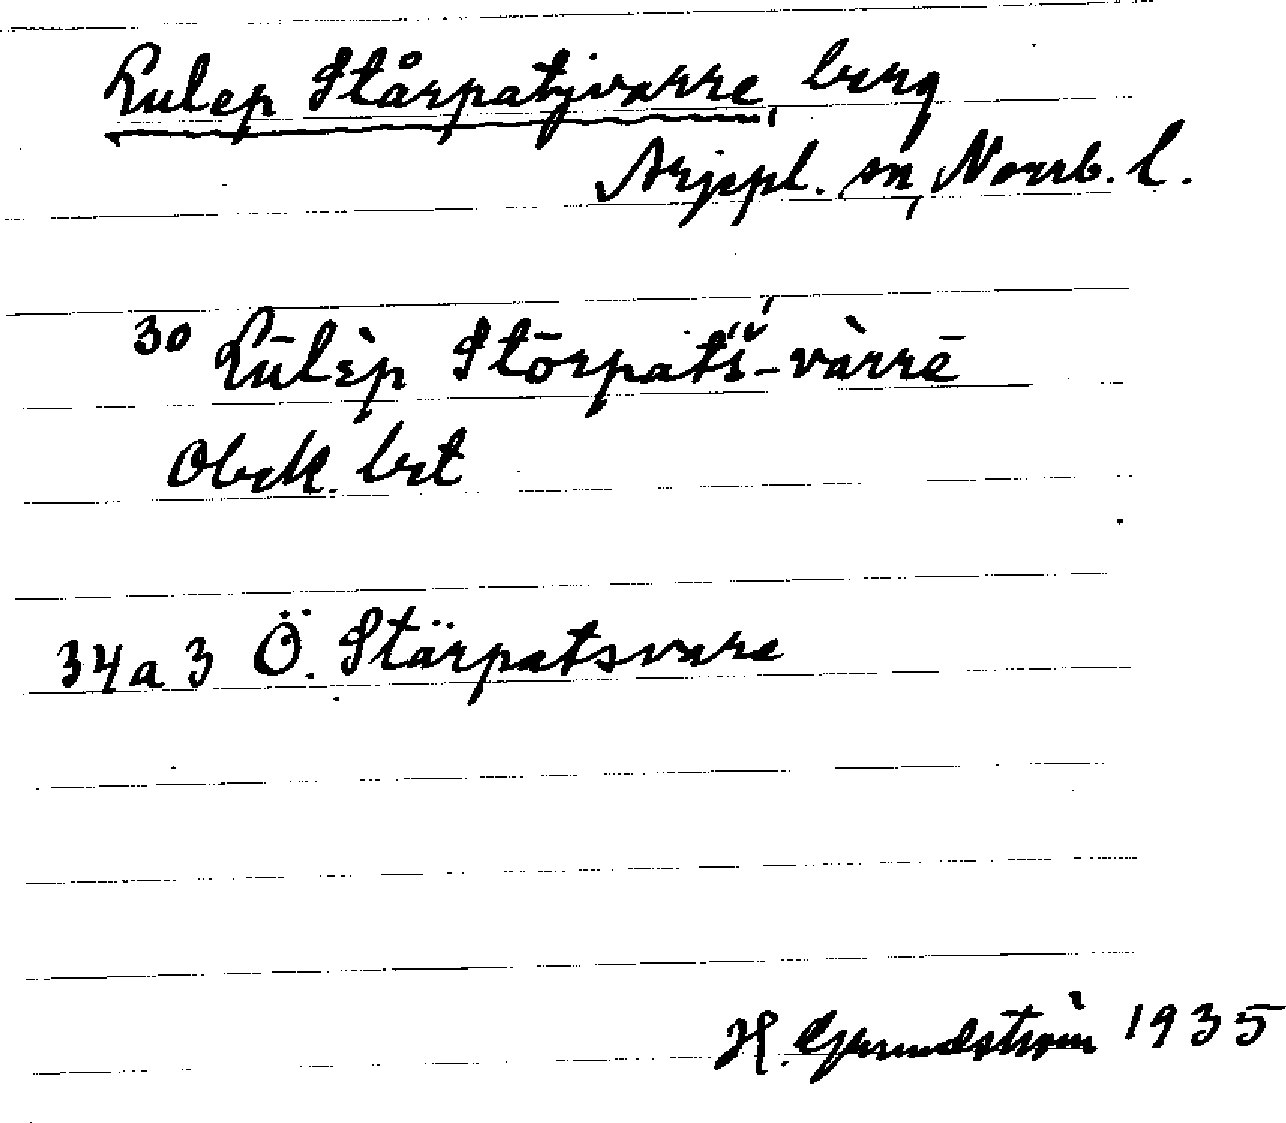 Lulep Stårpatjvarre, berg
Arjepl. sn, Norrb. l.
30 Lūlèp Stōrpatí̌-vàrrē
Obek. brt
34a3 Ö. Stärpatsvare
H. Grundström 1935